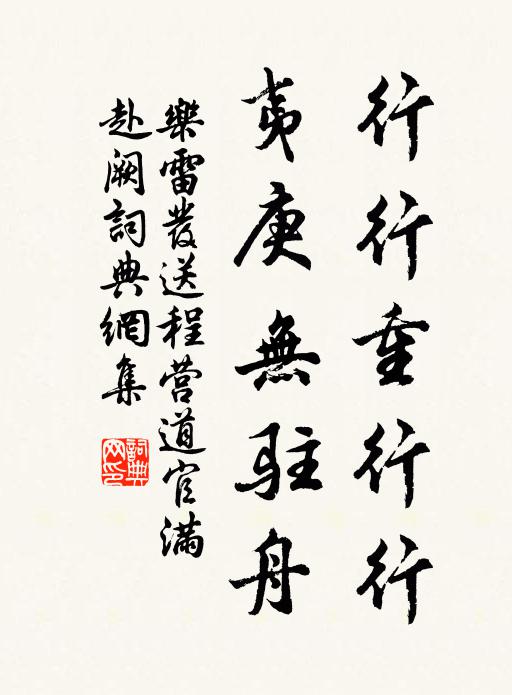 行行重行行
夷庚無駐舟
樂雷發送程营道官滿
赴阙詞典網集
詞典网印